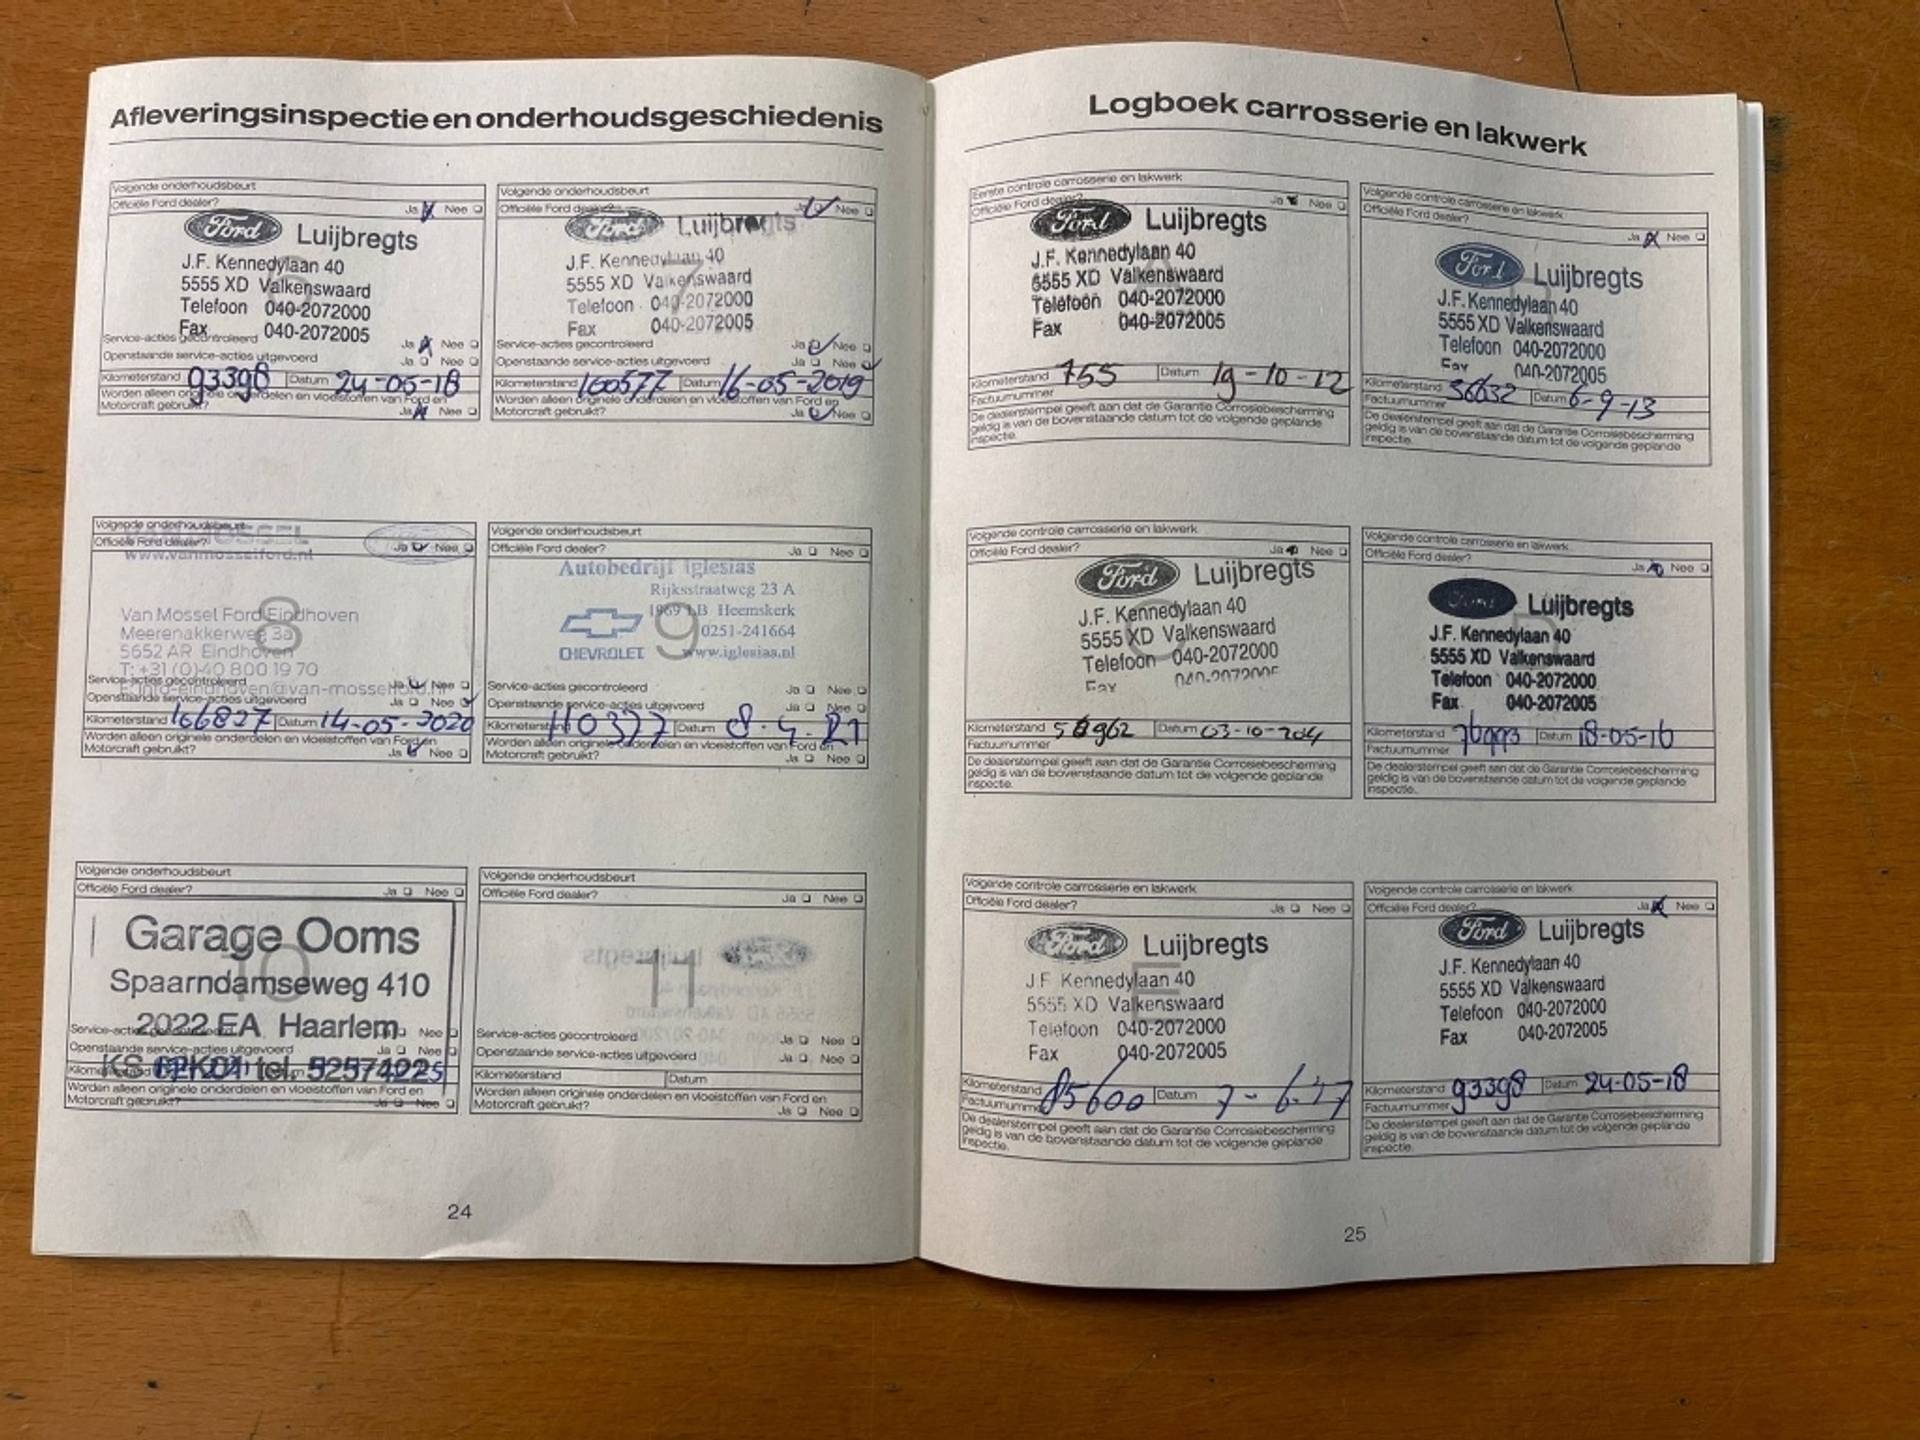 Afleveringsinspectie en onderhoudsgeschiedenis
Volgende onderhoudsbeurt
Officiële Ford dealer? Ja Nee
Ford Luijbregts
6
J.F. Kennedylaan 40
5555 XD Valkenswaard
Telefoon 040-2072000
Fax 040-2072005
Service-acties gecontroleerd Ja Nee
Openstaande service-acties uitgevoerd Ja Nee
Kilometerstand 93398 Datum 24-05-18
Worden alleen originele onderdelen en vloeistoffen van Ford en
Motorcraft gebruikt? Ja Nee
Volgende onderhoudsbeurt
Officiële Ford dealer? Ja Nee
Ford Luijbregts
7
J.F. Kennedylaan 40
5555 XD Valkenswaard
Telefoon 040-2072000
Fax 040-2072005
Service-acties gecontroleerd Ja Nee
Openstaande service-acties uitgevoerd Ja Nee
Kilometerstand 100577 Datum 16-05-2019
Worden alleen originele onderdelen en vloeistoffen van Ford en
Motorcraft gebruikt? Ja Nee
Volgende onderhoudsbeurt
Officiële Ford dealer? Ja Nee
www.vanmosselford.nl
8
Van Mossel Ford Eindhoven
Meerenakkerweg 3a
5652 AR Eindhoven
T: +31 (0)40 800 19 70
Service-acties gecontroleerd Ja Nee
E: info-eindhoven@van-mosselford.nl
Openstaande service-acties uitgevoerd Ja Nee
Kilometerstand 106827 Datum 14-05-2020
Worden alleen originele onderdelen en vloeistoffen van Ford en
Motorcraft gebruikt? Ja Nee
Volgende onderhoudsbeurt
Officiële Ford dealer? Ja Nee
Autobedrijf Iglesias
Rijksstraatweg 23 A
1969 LB Heemskerk
9
0251-241664
CHEVROLET www.iglesias.nl
Service-acties gecontroleerd Ja Nee
Openstaande service-acties uitgevoerd Ja Nee
Kilometerstand 110377 Datum 8-4-21
Worden alleen originele onderdelen en vloeistoffen van Ford en
Motorcraft gebruikt? Ja Nee
Volgende onderhoudsbeurt
Officiële Ford dealer? Ja Nee
Garage Ooms
10
Spaarndamseweg 410
2022 EA Haarlem
Service-acties gecontroleerd Nee
Openstaande service-acties uitgevoerd Ja Nee
tel. 5257422
Worden alleen originele onderdelen en vloeistoffen van Ford en
Motorcraft gebruikt? Ja Nee
Volgende onderhoudsbeurt
Officiële Ford dealer? Ja Nee
11
Service-acties gecontroleerd Ja Nee
Openstaande service-acties uitgevoerd Ja Nee
Kilometerstand Datum
Worden alleen originele onderdelen en vloeistoffen van Ford en
Motorcraft gebruikt? Ja Nee
24
Logboek carrosserie en lakwerk
Eerste controle carrosserie en lakwerk
Officiële Ford dealer? Ja Nee
Ford Luijbregts
A
J.F. Kennedylaan 40
5555 XD Valkenswaard
Telefoon 040-2072000
Fax 040-2072005
Kilometerstand 755 Datum 19-10-12
Factuurnummer
De dealerstempel geeft aan dat de Garantie Corrosiebescherming
geldig is van de bovenstaande datum tot de volgende geplande
inspectie.
Volgende controle carrosserie en lakwerk
Officiële Ford dealer?
Ja Nee
Ford Luijbregts
J.F. Kennedylaan 40
5555 XD Valkenswaard
Telefoon 040-2072000
Fax 040-2072005
Kilometerstand 36632 Datum 6-9-13
Factuurnummer
De dealerstempel geeft aan dat de Garantie Corrosiebescherming
geldig is van de bovenstaande datum tot de volgende geplande
inspectie.
Volgende controle carrosserie en lakwerk
Officiële Ford dealer? Ja Nee
Ford Luijbregts
C
J.F. Kennedylaan 40
5555 XD Valkenswaard
Telefoon 040-2072000
Fax 040-2072005
Kilometerstand Datum 03-10-2014
Factuurnummer
De dealerstempel geeft aan dat de Garantie Corrosiebescherming
geldig is van de bovenstaande datum tot de volgende geplande
inspectie.
Volgende controle carrosserie en lakwerk
Officiële Ford dealer?
Ja Nee
Ford Luijbregts
D
J.F. Kennedylaan 40
5555 XD Valkenswaard
Telefoon 040-2072000
Fax 040-2072005
Kilometerstand Datum 18-05-16
Factuurnummer
De dealerstempel geeft aan dat de Garantie Corrosiebescherming
geldig is van de bovenstaande datum tot de volgende geplande
inspectie.
Volgende controle carrosserie en lakwerk
Officiële Ford dealer? Ja Nee
Ford Luijbregts
E
J.F. Kennedylaan 40
5555 XD Valkenswaard
Telefoon 040-2072000
Fax 040-2072005
Kilometerstand 85600 Datum 7-6-17
Factuurnummer
De dealerstempel geeft aan dat de Garantie Corrosiebescherming
geldig is van de bovenstaande datum tot de volgende geplande
inspectie.
Volgende controle carrosserie en lakwerk
Officiële Ford dealer? Ja Nee
Ford Luijbregts
J.F. Kennedylaan 40
5555 XD Valkenswaard
Telefoon 040-2072000
Fax 040-2072005
Kilometerstand 93398 Datum 24-05-18
Factuurnummer
De dealerstempel geeft aan dat de Garantie Corrosiebescherming
geldig is van de bovenstaande datum tot de volgende geplande
inspectie.
25